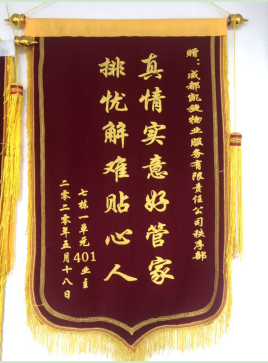 赠：成都凯旋物业服务有限责任公司秩序部
真情实意好管家
排忧解难贴心人
七栋一单元401业主
二零二零年五月十八日